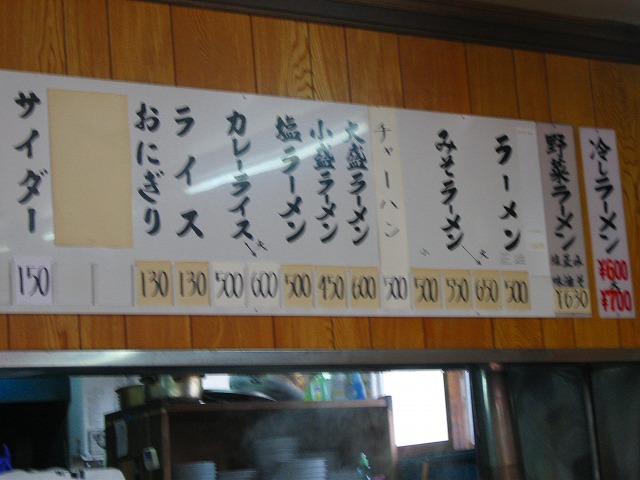 冷しラーメン
¥600
大
¥700
野菜ラーメン
¥630
ラーメン
500
みそラーメン
大
650
550
小
500
チャーハン
500
大盛ラーメン
600
小盛ラーメン
450
塩ラーメン
500
カレーライス
大
600
500
ライス
130
おにぎり
130
サイダー
150